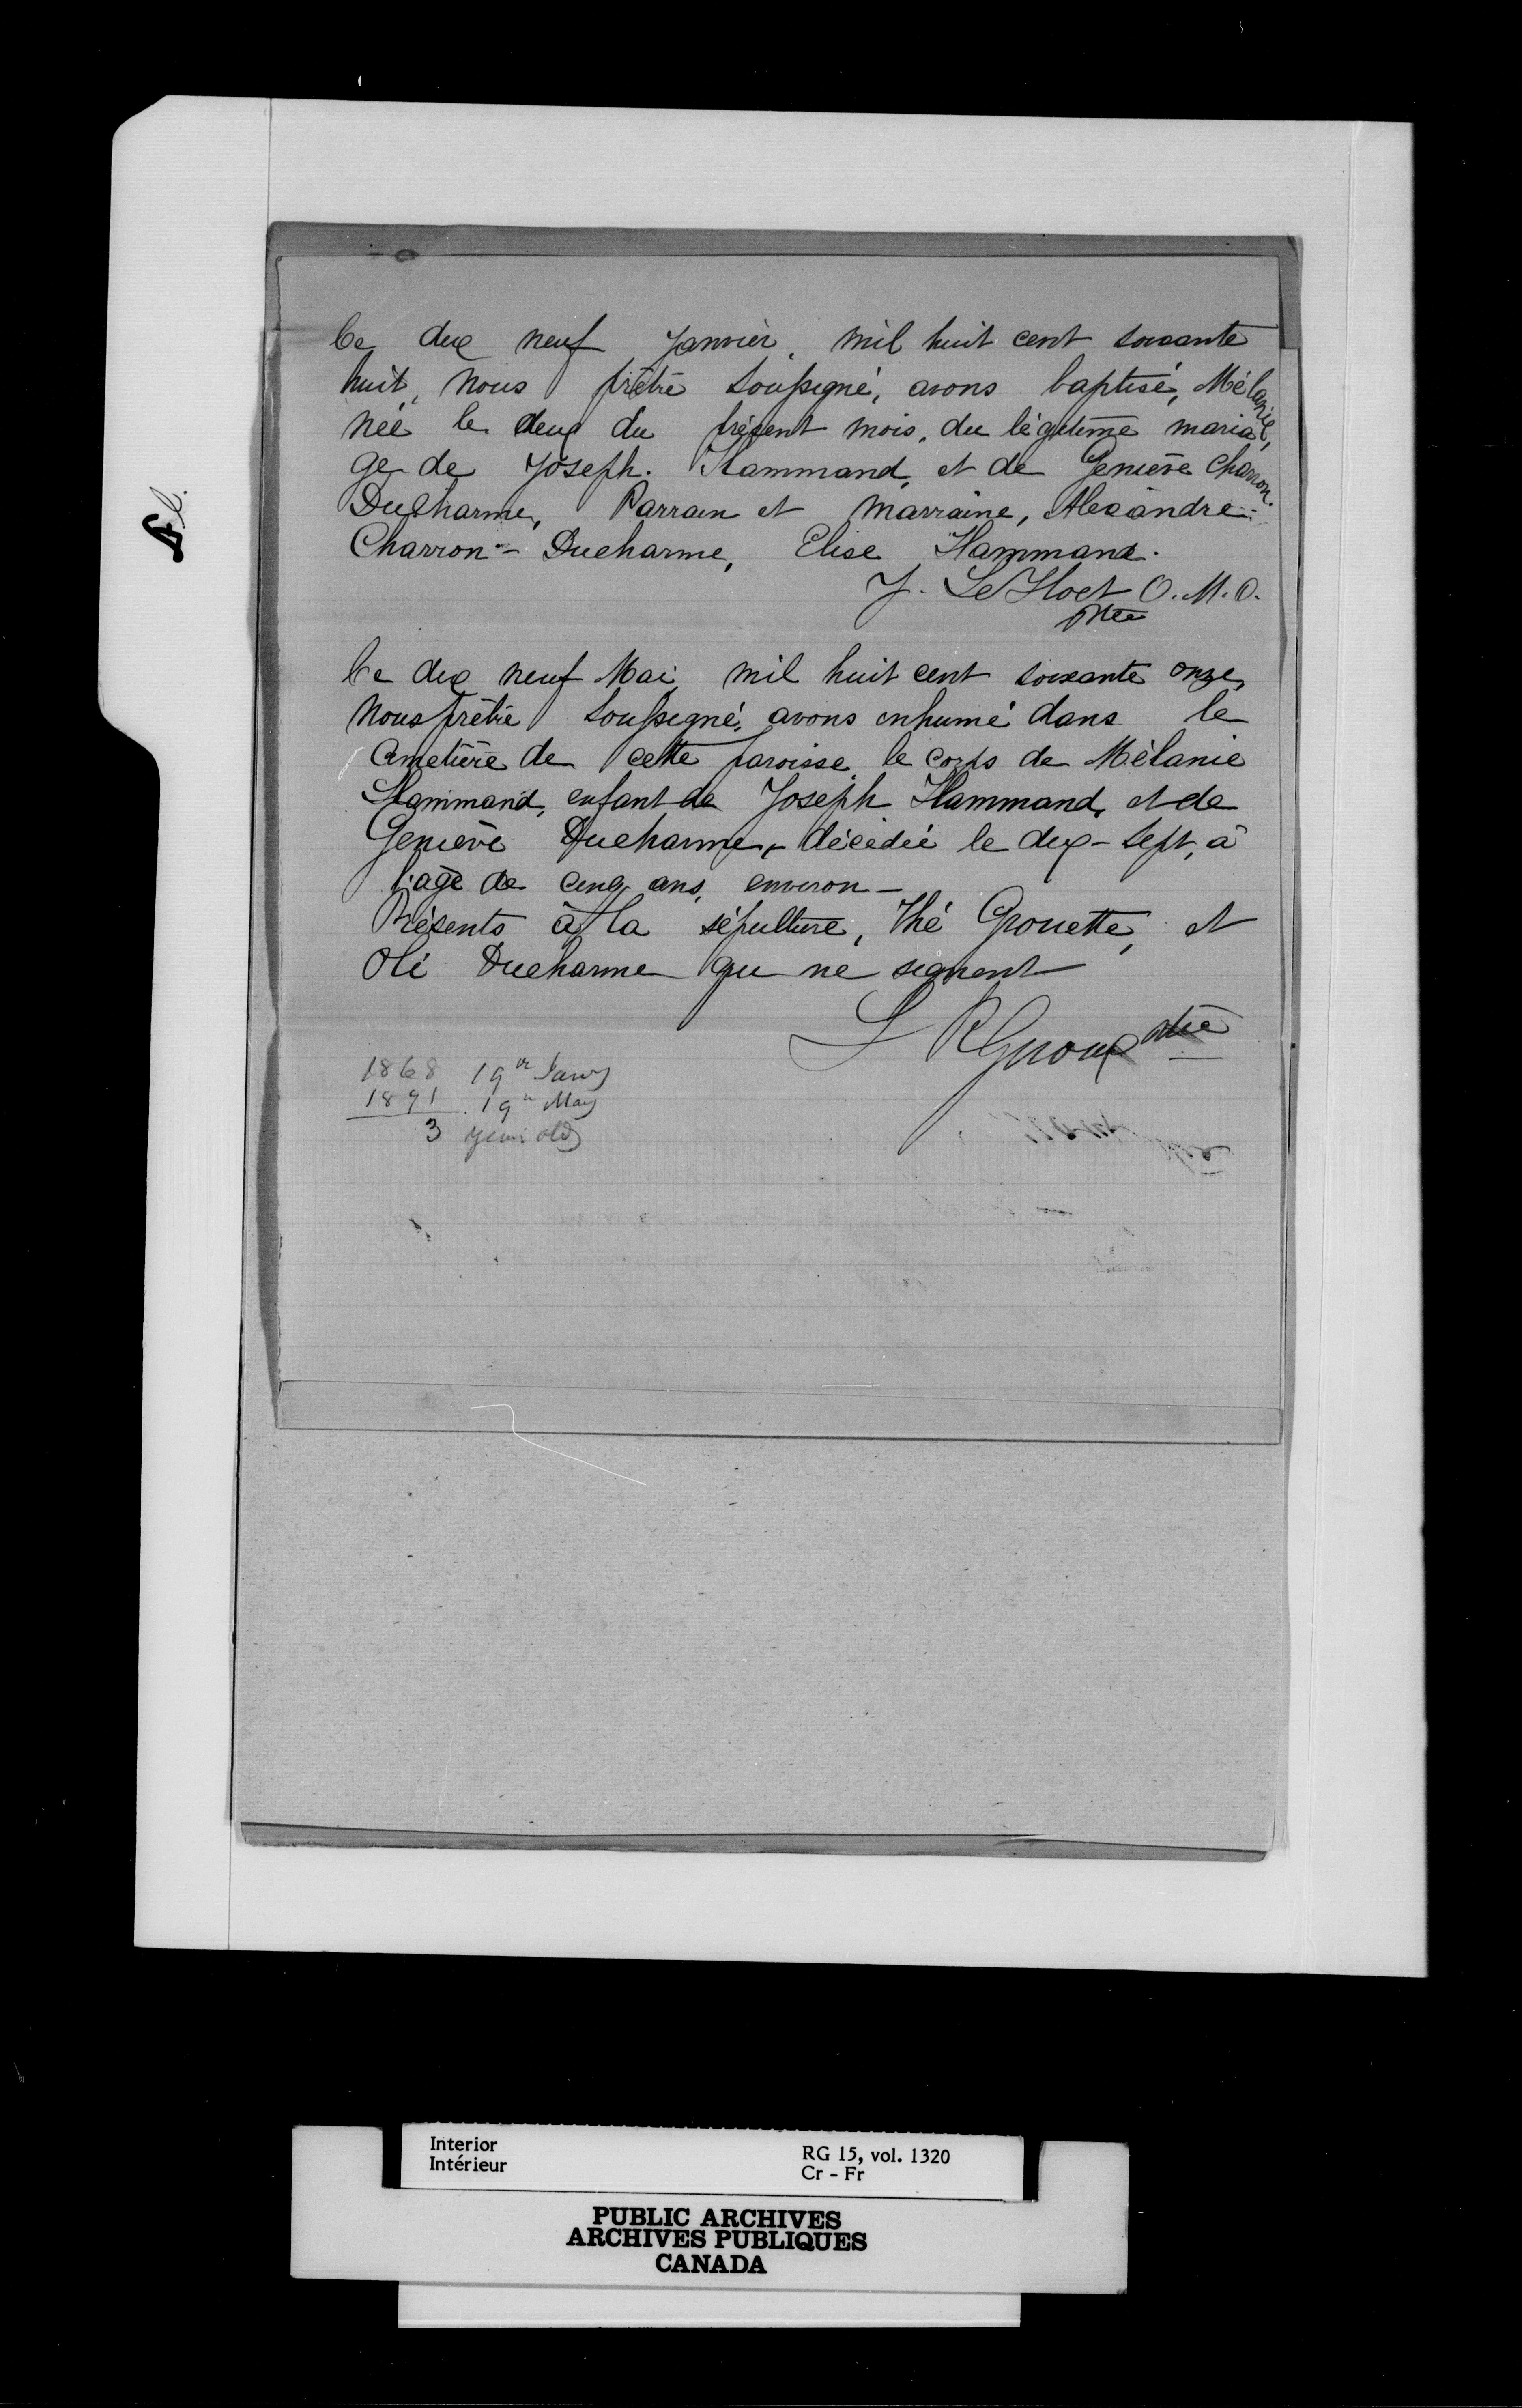 Ce dix neuf Janvier, mil huit cent soixante
huit, nous prêtre soussigné, avons baptisé, Mélanie,
née le deux du présent mois, du légitime maria
ge de Joseph. Hammand, et de Geniève Charron.
Ducharme, Parrain et marraine, Alexandre
Charron - Ducharme, Elise Hammand.
J. LeFloch O.M.O.
Ptre
Ce dix neuf Mai mil huit cent soixante onze,
Nous prêtre soussigné, avons inhumé dans le
Cimetière de cette paroisse le corps de Mélanie
Hammand, enfant de Joseph Hammand, et de
Geniève Ducharme, décédée le dix-sept, à
l'âge de cinq ans, environ -
Présents à la sépulture, Thé Grouette, et
Olé Ducharme qui ne signent
L R Giroux Ptre
1868 19th Jany
1871 19th May
3 years old
Interior
Intérieur
RG 15, vol. 1320
Cr - Fr
PUBLIC ARCHIVES
ARCHIVES PUBLIQUES
CANADA